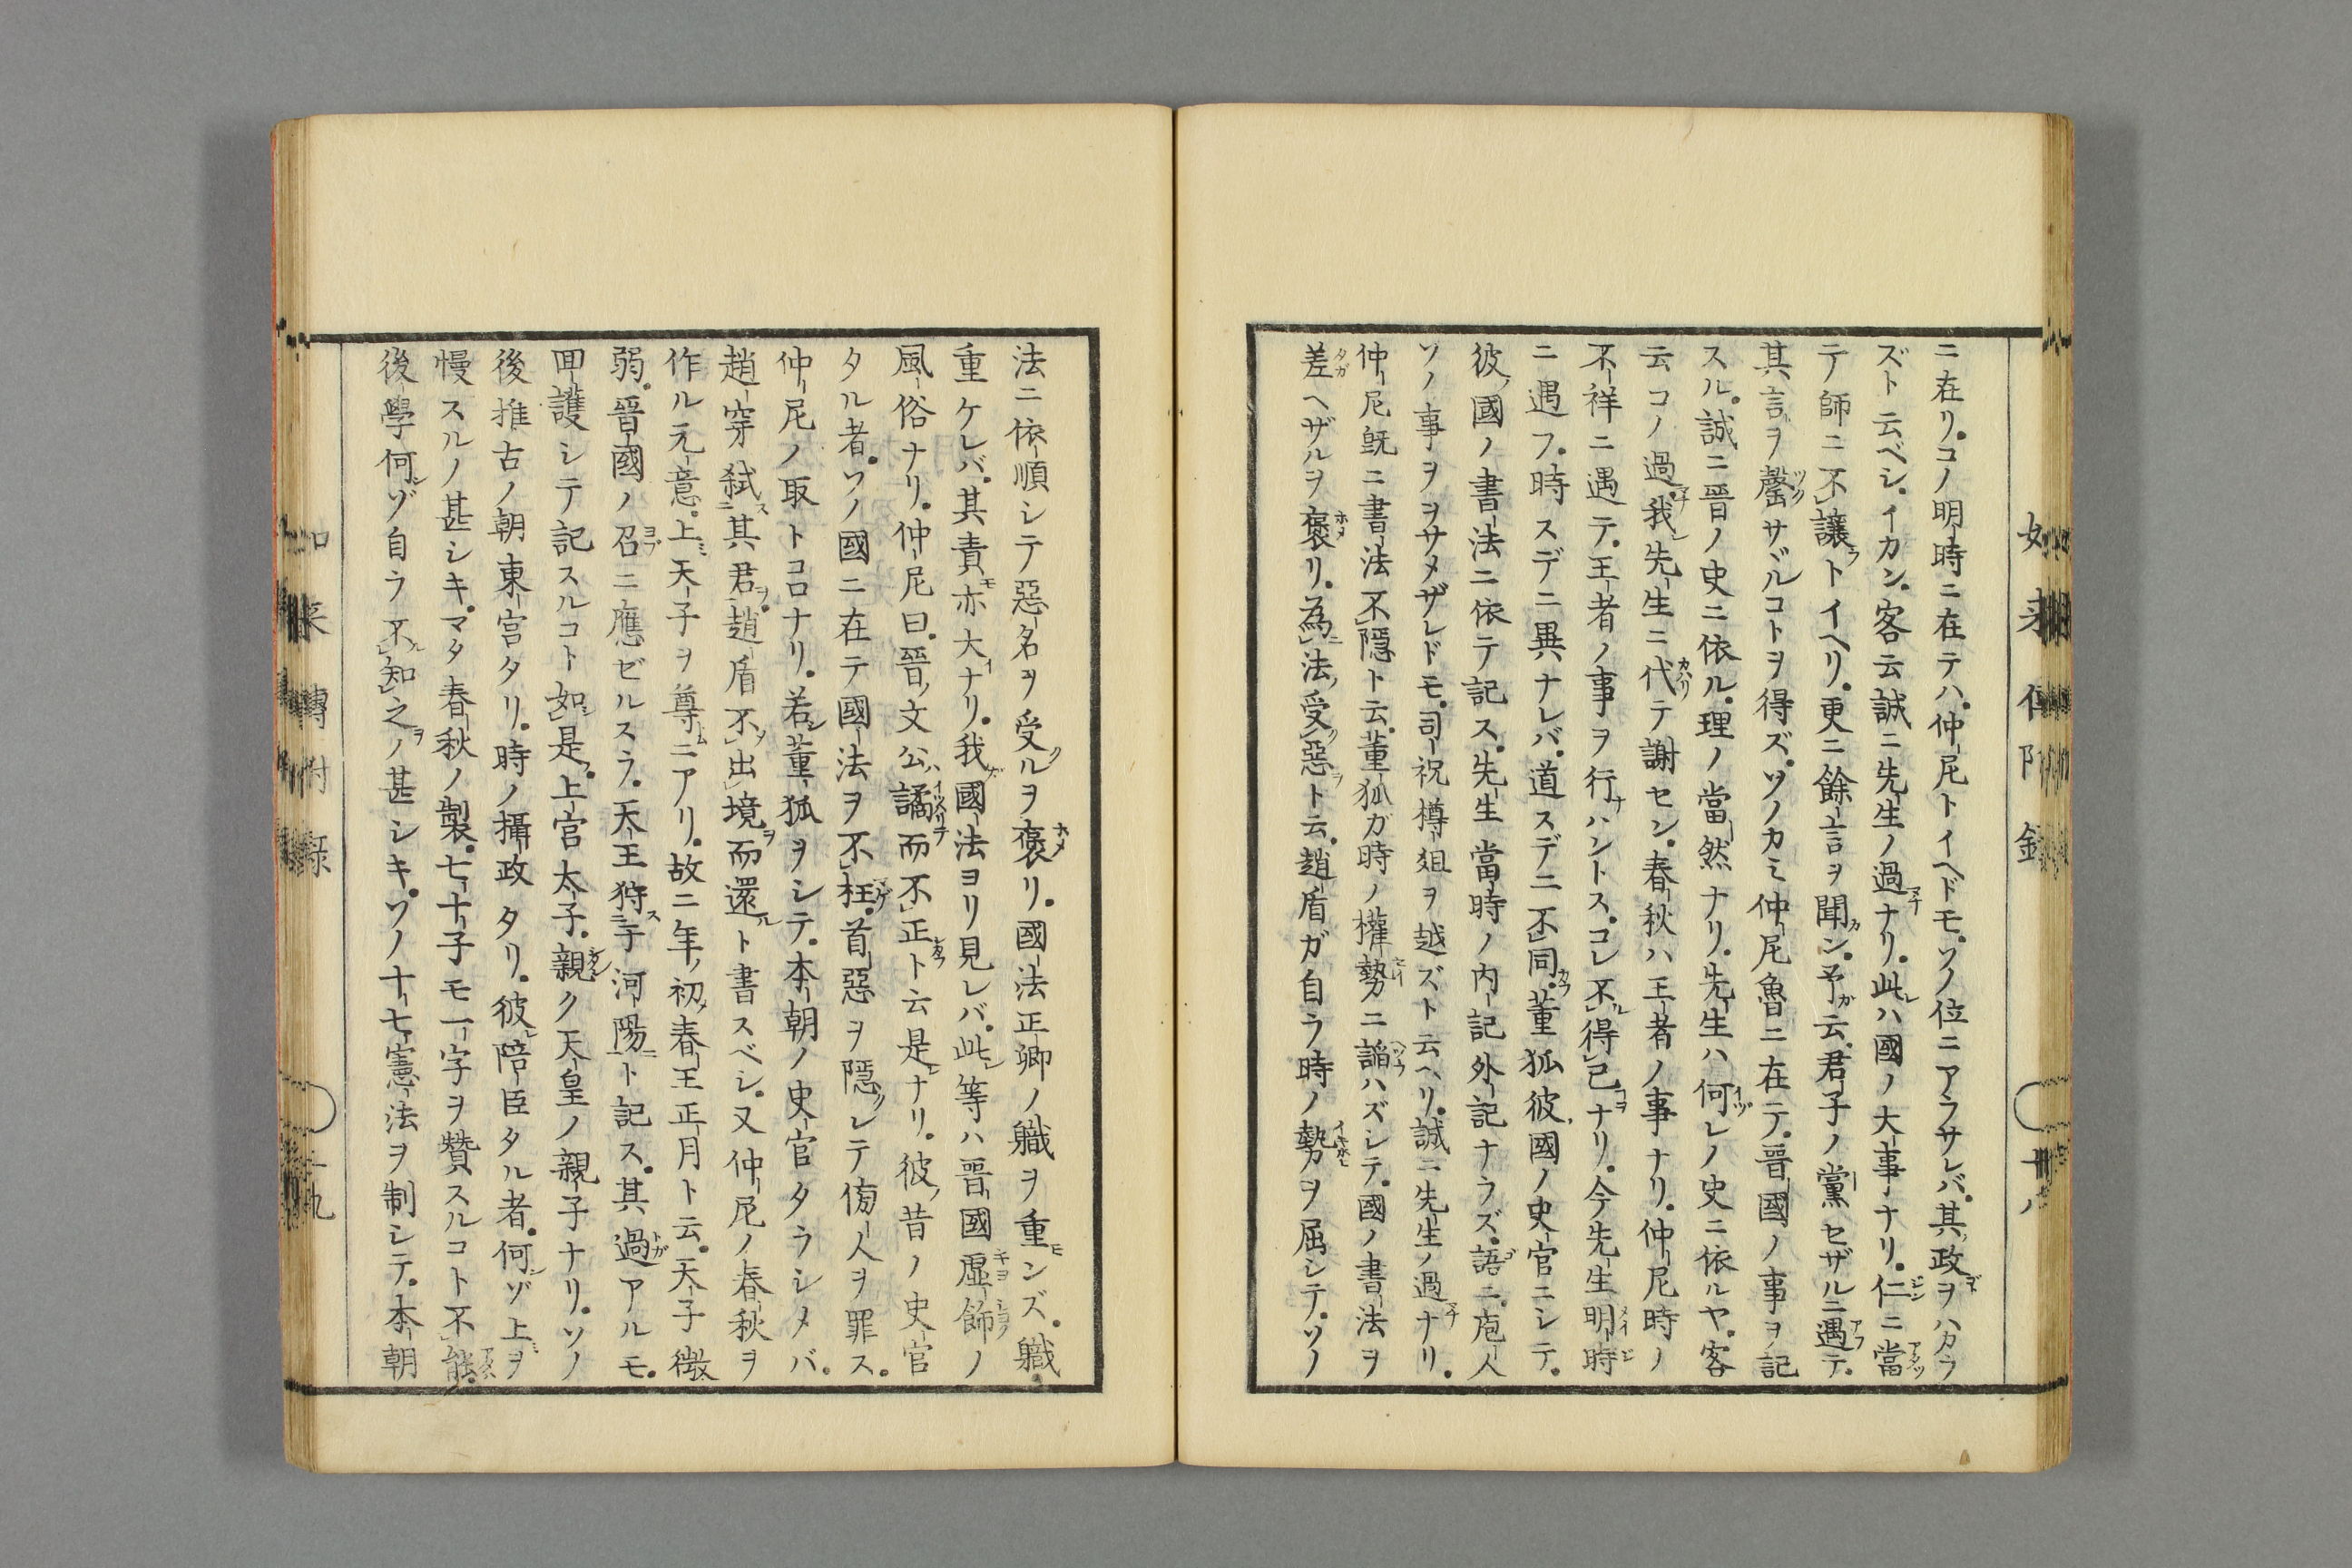 ニ在リ。コノ明時ニ在テハ。仲尼トイヘドモ。ソノ位ニアラサレバ。其政ヲハカラ
ズト云ベシ。イカン。客云誠ニ先生ノ過ナリ。此ハ國ノ大事ナリ。仁ニ當
テ師ニ不讓トイヘリ。更ニ餘言ヲ聞ン。予云。君子ノ黨セザルニ遇テ。
其言ヲ罄サヾルコトヲ得ズ。ソノカミ仲尼魯ニ在テ。晉國ノ事ヲ記
スル。誠ニ晉ノ史ニ依ル。理ノ當然ナリ。先生ハ何レノ史ニ依ルヤ。客
云コノ過。我先生ニ代テ謝セン。春秋ハ王者ノ事ナリ。仲尼時ノ
不祥ニ遇テ。王者ノ事ヲ行ハントス。コレ不得已ナリ。今先生明時
ニ遇フ。時スデニ異ナレバ。道スデニ不同。董狐彼國ノ史官ニシテ。
彼國ノ書法ニ依テ記ス。先生當時ノ内記外記ナラズ。語ニ。庖人
ソノ事ヲヲサメザレドモ。司祝樽俎ヲ越ズト云ヘリ。誠ニ先生ノ過ナリ。
仲尼既ニ書法不隱ト云。董狐ガ時ノ權勢ニ諂ハズシテ。國ノ書法ヲ
差ヘザルヲ褒リ。為法受惡ト云。趙盾ガ自ラ時ノ勢ヲ屈シテ。ソノ
如来傳附録
十八
法ニ依順シテ惡名ヲ受ルヲ褒リ。國法正卿ノ職ヲ重ンズ。職
重ケレバ。其責亦大ナリ。我國法ヨリ見レバ。此等ハ晉國虚飾ノ
風俗ナリ。仲尼曰。晉文公譎而不正ト云是ナリ。彼昔ノ史官
タル者。ソノ國ニ在テ國法ヲ不枉。首惡ヲ隱シテ傍人ヲ罪ス。
仲尼ノ取トコロナリ。若董狐ヲシテ。本朝ノ史官タラシメバ。
趙穿弑其君。趙盾不出境而還ト書スベシ。又仲尼ノ春秋ヲ
作ル元意。上天子ヲ尊ニアリ。故ニ年初春王正月ト云。天子微
弱。晉國ノ召ニ應ゼルスラ。天王狩于河陽ト記ス。其過アルモ。
囬護シテ記スルコト如是。上宮太子。親ク天皇ノ親子ナリ。ソノ
後推古ノ朝東宮タリ。時ノ攝政タリ。彼陪臣タル者。何ゾ上ヲ
慢スルノ甚シキ。マタ春秋ノ製。七十子モ一字ヲ贊スルコト不能。
後學何ゾ自ラ不知之ノ甚シキ。ソノ十七憲法ヲ制シテ。本朝
如来傳附録
十九